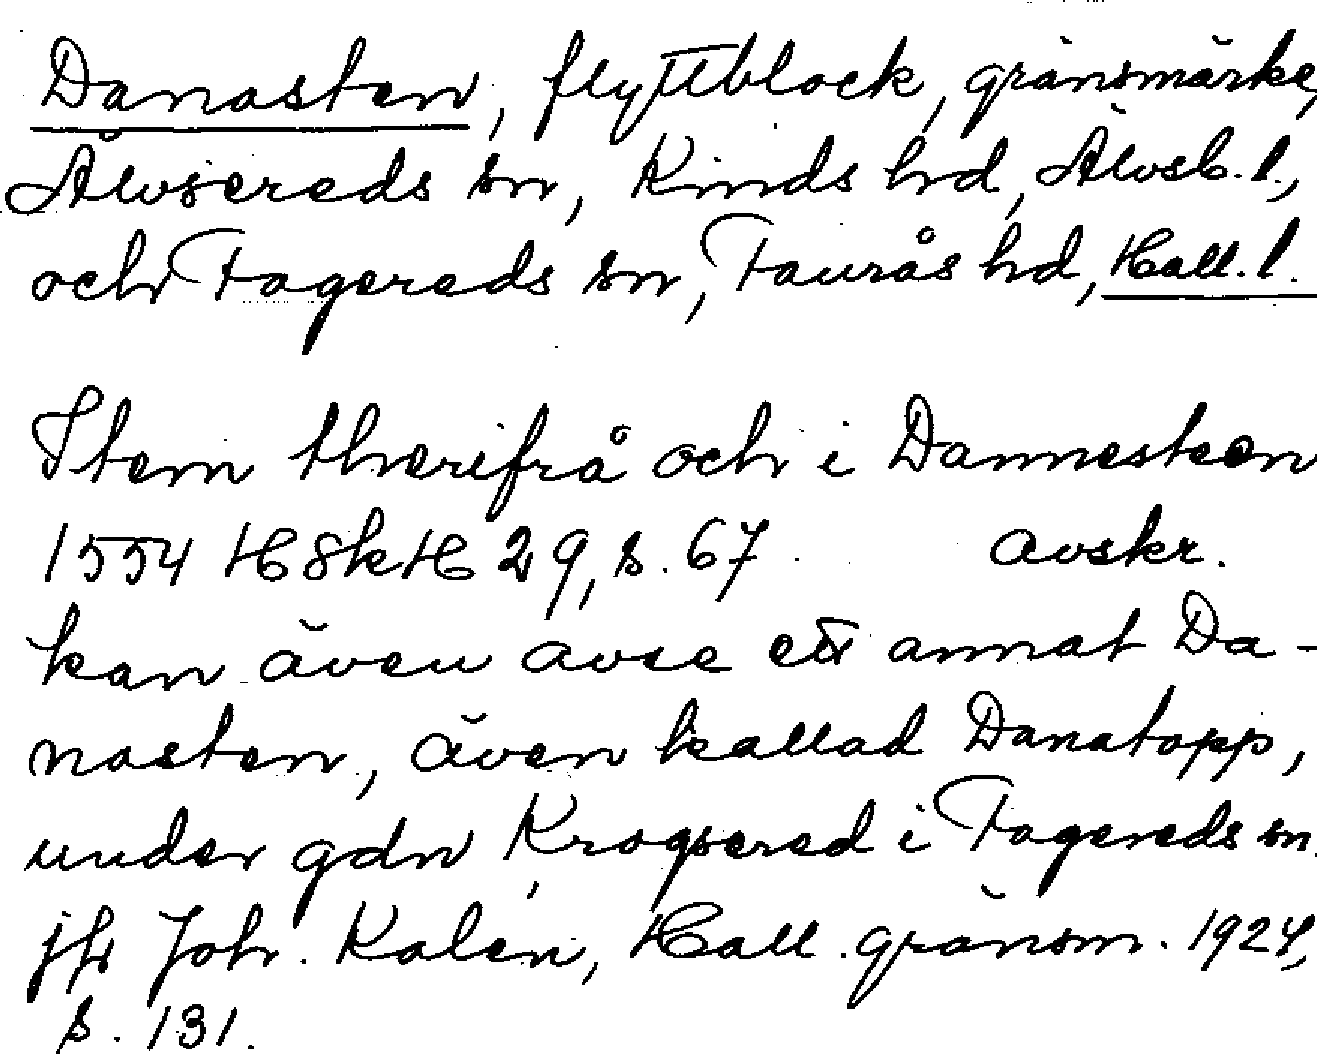 Danasten, flyttblock, gränsmärke,
Älvsereds sn, Kinds hd, Älvsb. l.,
och Fagereds sn, Faurås hd, Hall. l.
Item therifrå och i Dannesteen
1554 HSkH 29, s. 67 avskr.
kan även avse ett annat Da-
nasten, även kallad Danatopp,
under gdn Krogsered i Fagereds sn.
jfr Joh. Kalén, Hall. gränsm. 1924,
s. 131.